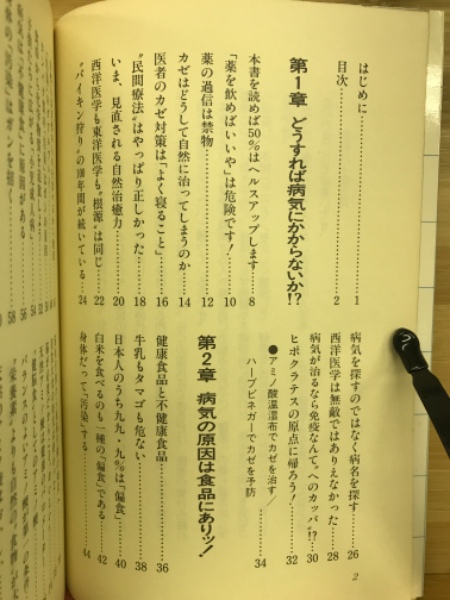 はじめに……1
目次……2
第1章 どうすれば病気にかからないか!?
本書を読めば50%はヘルスアップします……8
「薬を飲めばいいや」は危険です!……10
薬の過信は禁物……12
カゼはどうして自然に治ってしまうのか……14
医者のカゼ対策は「よく寝ること」……16
"民間療法"はやっぱり正しかった……18
いま、見直される自然治癒力……20
西洋医学も東洋医学も"根源"は同じ……22
"バイキン狩り"の100年間が続いている……24
病気を探すのではなく病名を探す……26
西洋医学は無敵ではありえなかった……28
病気が治るなら免疫なんて"へのカッパ"!?……30
ヒポクラテスの原点に帰ろう!……32
●アミノ酸温湿布でカゼを治す/
ハーブビネガーでカゼを予防……34
第2章 病気の原因は食品にありッ!
健康食品と不健康食品……36
牛乳もタマゴも危ない……38
日本人のうち九九・九%は「偏食」……40
白米を食べるのも一種の「偏食」である……42
身体だって「汚染」する……44
2